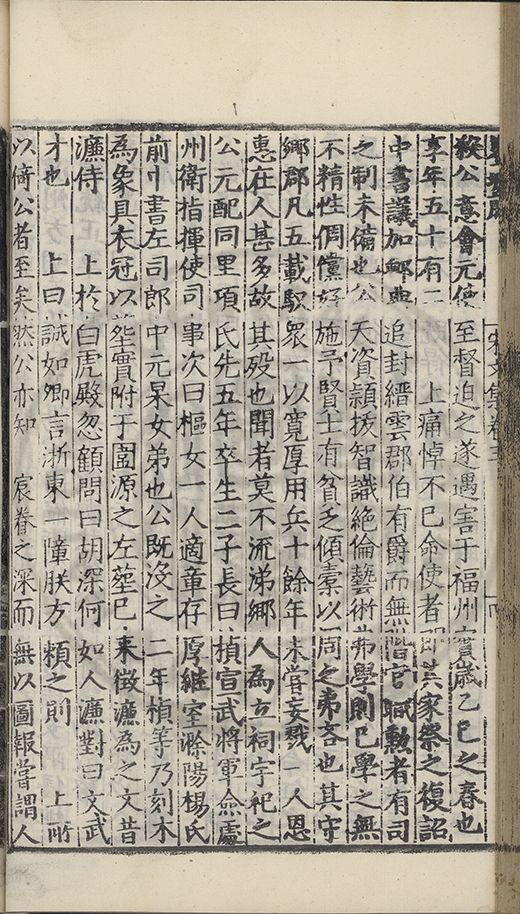 宋文集卷三
殺公意會元使至督迫之遂遇害于福州實歲乙巳之春也
享年五十有二 上痛悼不已命使者即其家祭之復詔
中書議加卹典追封縉雲郡伯有爵而無階官職勳者有司
之制未備也公天資穎拔智識絶倫藝術弗學則已學之無
不精性倜儻好施予賢士有貧乏傾橐以周之弗吝也其守
鄉郡凡五載馭衆一以寬厚用兵十餘年未嘗妄戮一人恩
惠在人甚多故其殁也聞者莫不流涕鄉人為立祠宇祀之
公元配同里項氏先五年卒生二子長曰楨宣武將軍僉處
州衛指揮使司事次曰樞女一人適章存厚繼室滁陽楊氏
前中書左司郎中元杲女弟也公既沒之二年楨等乃刻木
為象具衣冠以葬實附于固源之左葬已來徵濂為之文昔
濂侍 上於白虎殿忽顧問曰胡深何如人濂對曰文武
才也 上曰誠如卿言浙東一障朕方賴之則 上所
以倚公者至矣然公亦知 宸眷之深而無以圖報嘗謂人